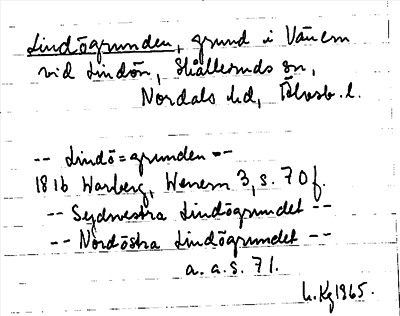 Lindögrunden, grund i Vänern
vid Lindön, Skålleruds sn,
Nordals hd, Älvsb. l.
-- Lindö=grunden --
1816 Warberg, Wenern 3, s. 70 f.
-- Sydvestra Lindögrundet --
-- Nordöstra Lindögrundet --
a. a. s. 71.
Kg 1965.